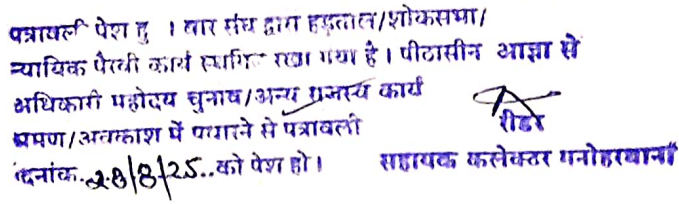 पत्रावली पेश हु । बार संघ द्वारा हड़ताल/शोकसभा/
न्यायिक पैरवी कार्य स्थगित रखा गया है । पीठासीन आज्ञा से
अधिकारी महोदय चुनाव/अन्य राजस्व कार्य
भ्रमण/अवकाश में पधारने से पत्रावली रीडर
दिनांक 28/8/25.. को पेश हो । सहायक कलेक्टर मनोहरथाना